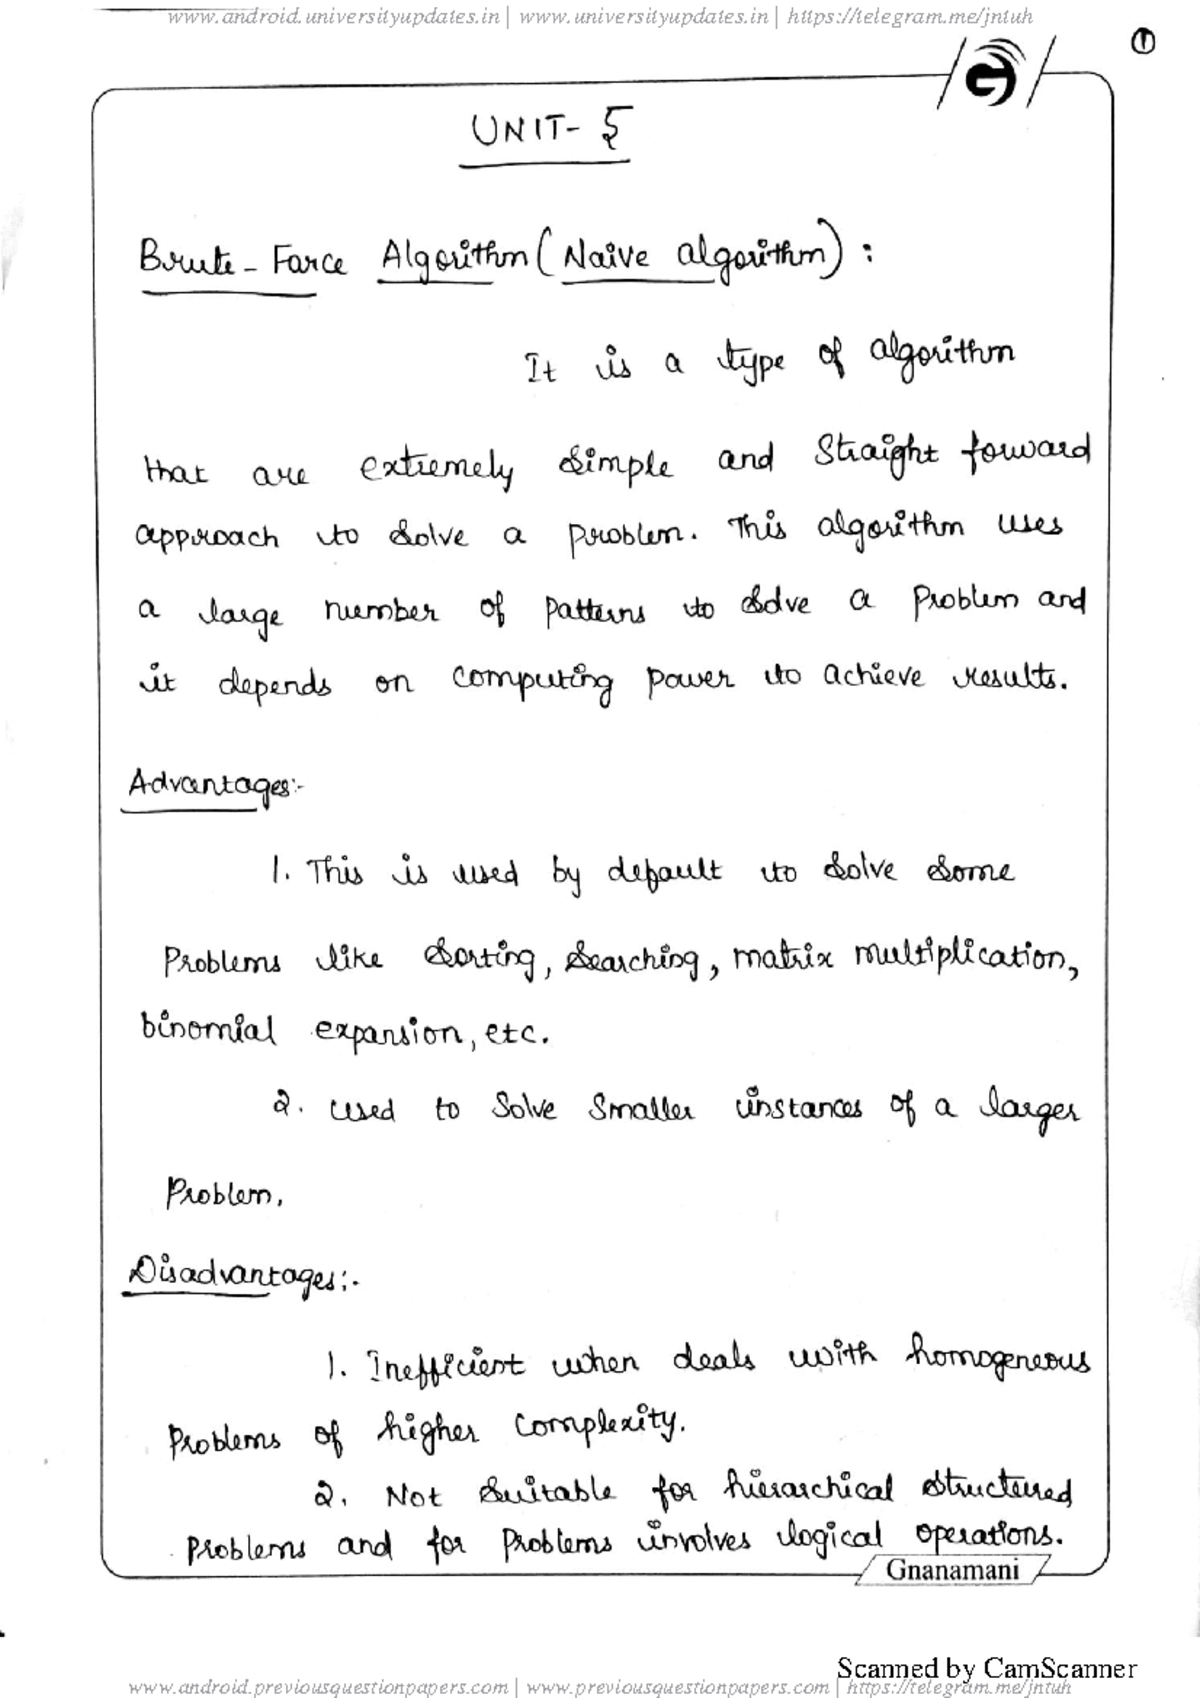 www.android.universityupdates.in | www.universityupdates.in | https://telegram.me/jntuh
1
UNIT- 5
Brute - Farce Algorithm (Naive algorithm) :
It is a type of algorithm
that are extremely simple and straight forward
approach to solve a problem. This algorithm uses
a large number of patterns to solve a problem and
it depends on computing power to achieve results.
Advantages:-
1. This is used by default to solve some
problems like sorting, searching, matrix multiplication,
binomial expansion, etc.
2. used to solve smaller instances of a larger
problem.
Disadvantages:-
1. Inefficient when deals with homogeneous
problems of higher complexity.
2. Not suitable for hierarchical structured
problems and for problems involves logical operations.
Gnanamani
Scanned by CamScanner
www.android.previousquestionpapers.com | www.previousquestionpapers.com | https://telegram.me/jntuh